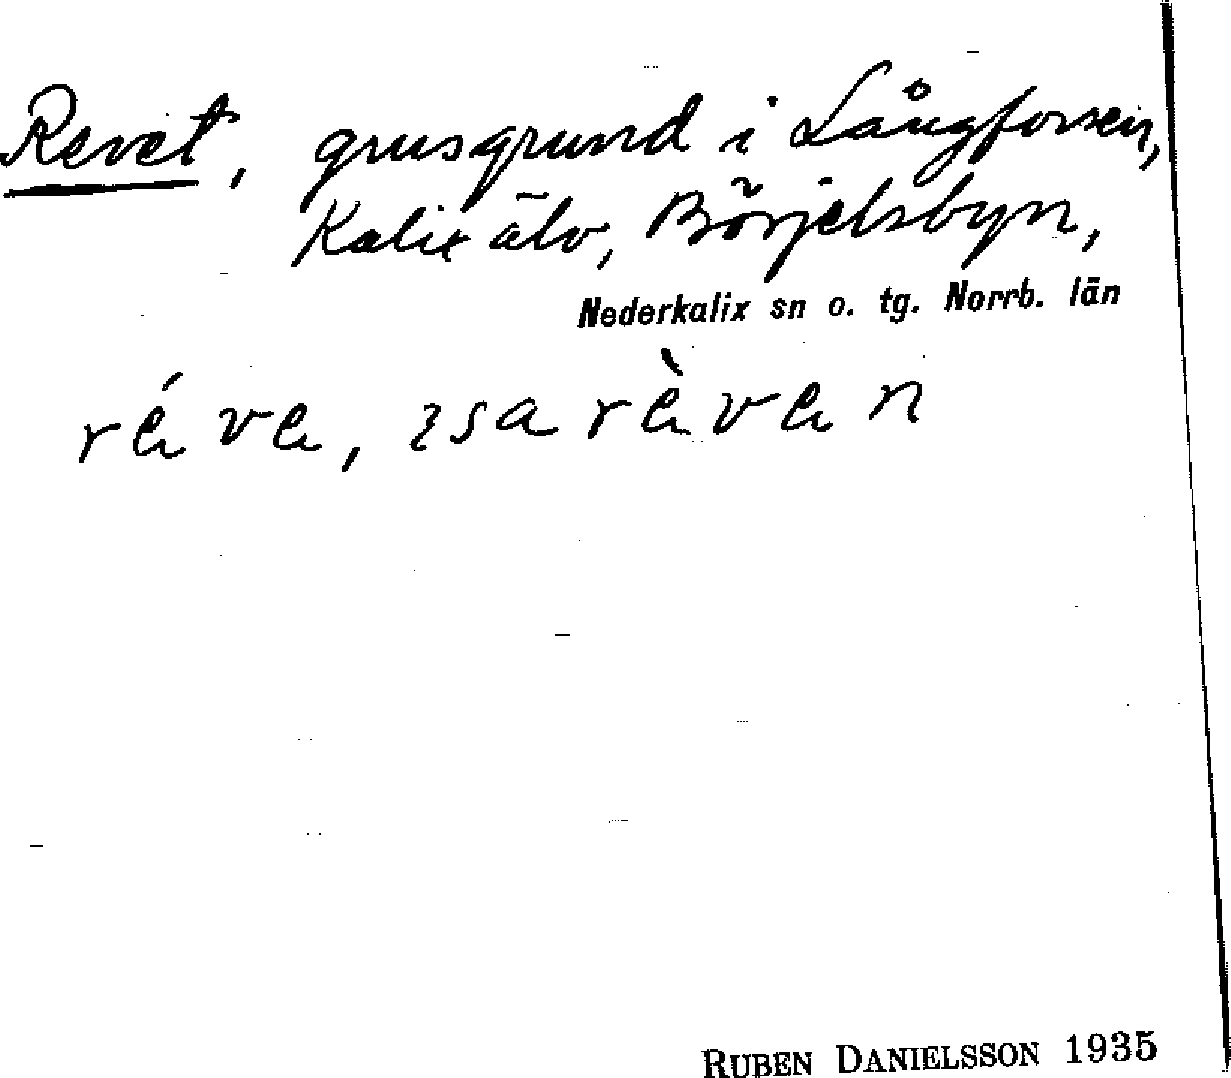 Revet, grusgrund i Långforsen,
Kalix älv, Börjelsbyn,
Nederkalix sn o. tg. Norrb. län
réve, ısa rèven
RUBEN DANIELSSON 1935